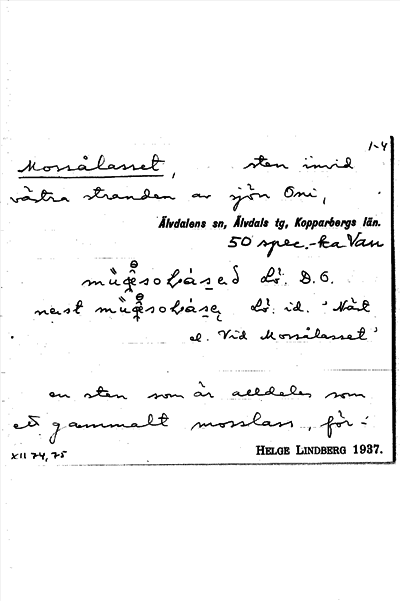 1-4
Mossålasset, sten invid
västra stranden av sjön Oni,
Älvdalens sn, Älvdals tg, Kopparbergs län.
50 spec.-ka Van
Lö. D. O.
Lö. id. 'Näst
el. Vid Mossålasset'
en sten som är alldeles som
ett gammalt mosslass, för-
XII 74, 75
HELGE LINDBERG 1937.